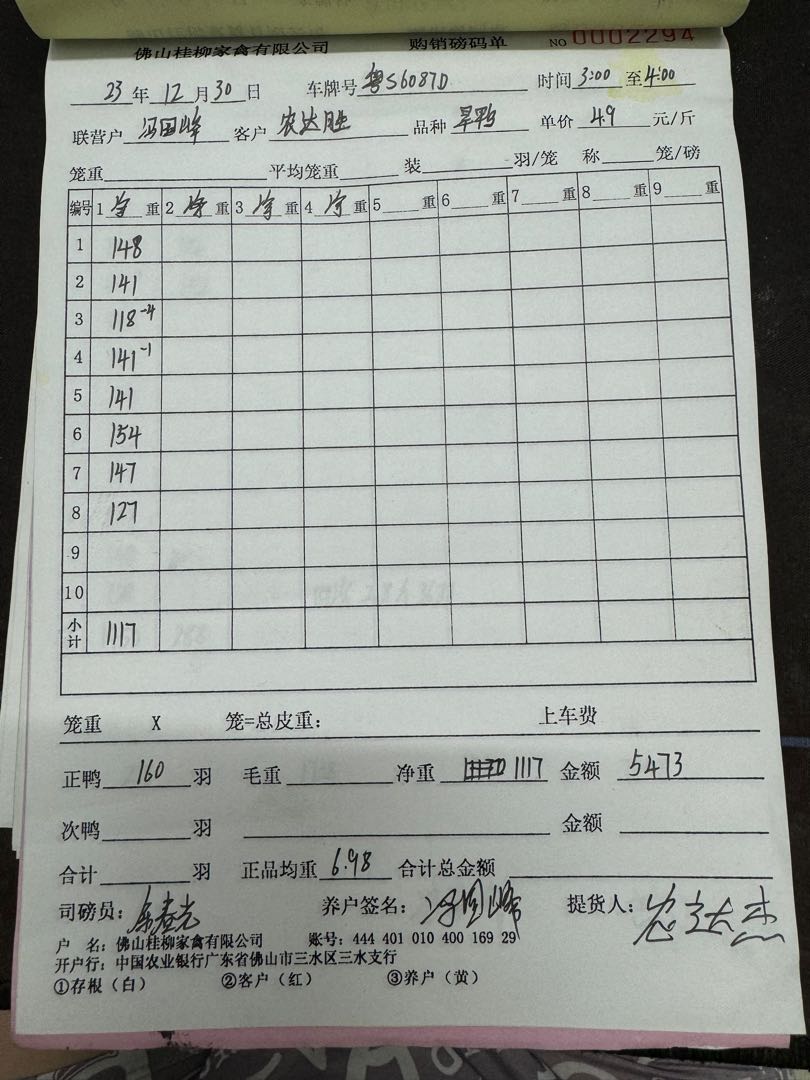 佛山桂柳家禽有限公司 购销磅码单 NO 0002294
23年12月30日 车牌号 粤S6087D 时间 3:00 至 4:00
联营户 冯国峰 客户 农达胜 品种 旱鸭 单价 4.9 元/斤
笼重 平均笼重 装 羽/笼 称 笼/磅
编号 1 净 重 2 净 重 3 净 重 4 净 重 5 重 6 重 7 重 8 重 9 重
1 148
2 141
3 118-4
4 141-1
5 141
6 154
7 147
8 127
9
10
小计 1117
笼重 X 笼=总皮重： 上车费
正鸭 160 羽 毛重 净重 1117 金额 5473
次鸭 羽 金额
合计 羽 正品均重 6.98 合计总金额
司磅员： 养户签名：冯国峰 提货人：农达杰
户 名：佛山桂柳家禽有限公司 账号：444 401 010 400 169 29
开户行：中国农业银行广东省佛山市三水区三水支行
①存根（白） ②客户（红） ③养户（黄）